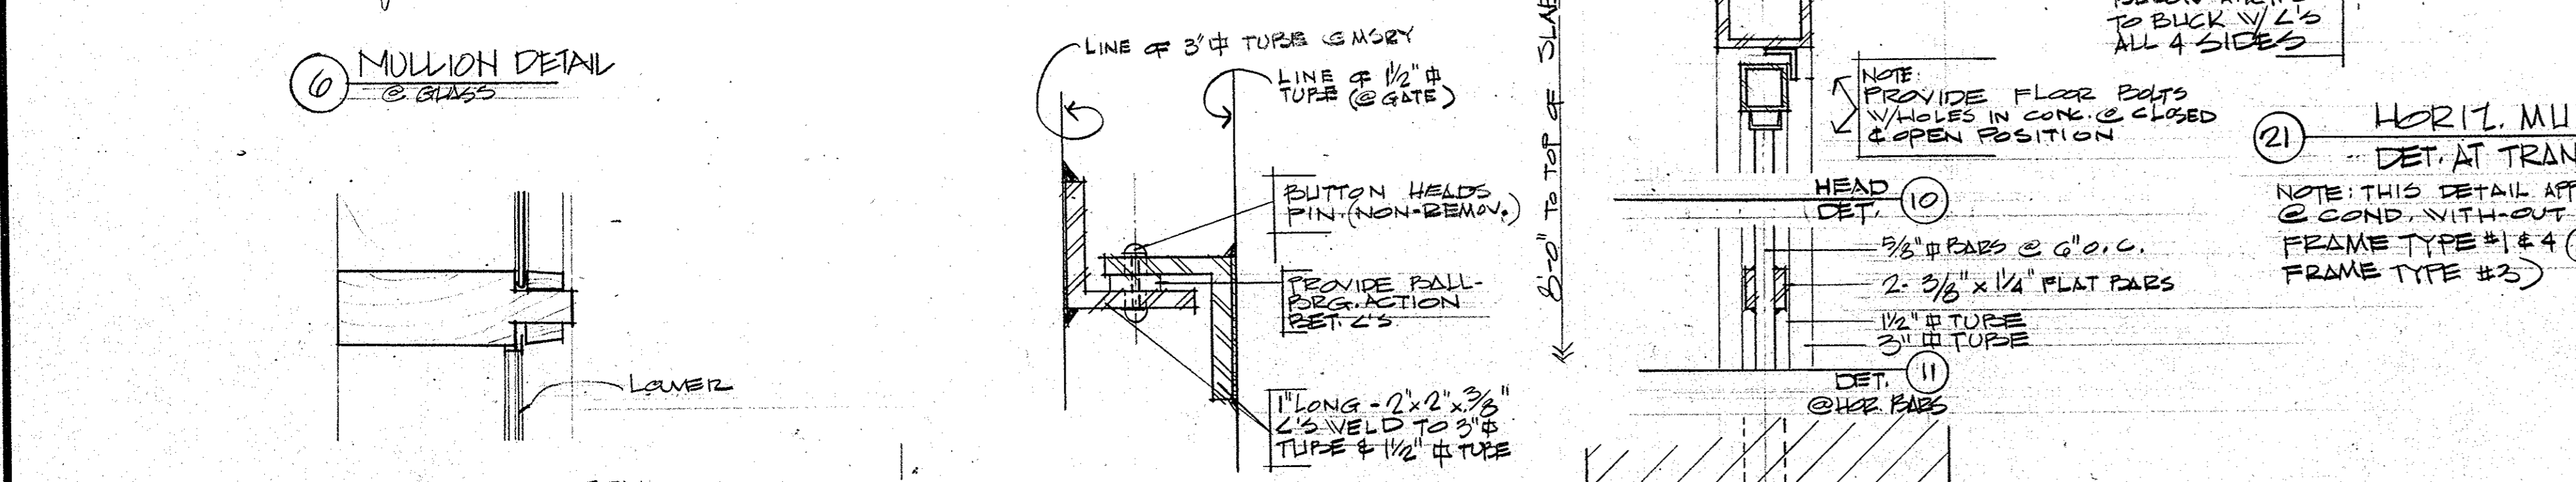 6 MULLION DETAIL
@ GLASS
LOUVER
LINE OF 3" ⌷ TUBE @ MSRY
LINE OF 1½" ⌷
TUBE (@ GATE)
BUTTON HEADS
PIN. (NON-REMOV.)
PROVIDE BALL-
BRG. ACTION
BET. ∠'S
1" LONG - 2" x 2" x 3/8"
∠'S WELD TO 3" ⌷
TUBE & 1½" ⌷ TUBE
8'-0" TO TOP OF SLAB
TO BUCK W/ ∠'S
ALL 4 SIDES
NOTE:
PROVIDE FLOOR BOLTS
W/HOLES IN CONC. @ CLOSED
& OPEN POSITION
HEAD
DET. 10
5/8" ⌷ BARS @ 6" O.C.
2- 3/8" x 1¼" FLAT BARS
1½" ⌷ TUBE
3" ⌷ TUBE
DET. 11
@ HOR. BARS
21 HORIZ. MU
DET. AT TRAN
NOTE: THIS DETAIL APP
@ COND. WITH-OUT
FRAME TYPE #1 & 4 (
FRAME TYPE #3)